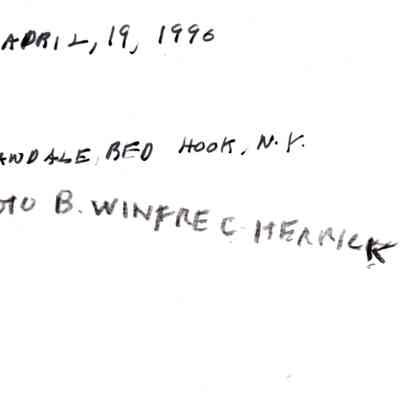 APRIL, 19, 1996
ANDALE, RED HOOK, N.Y.
OTO B. WINFRE C. HERRICK